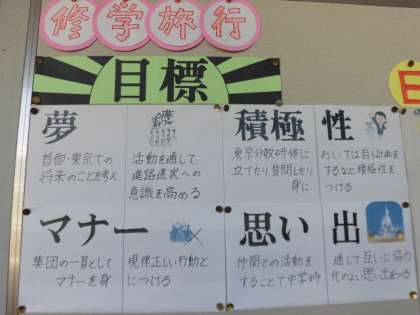 修学旅行
目標
夢
首都・東京での
将来のことを考え
活動を通して、
進路選択への
意識を高める
積極性
東京分散研修に
立てたり、質問したり
身に
おいては自ら計画を
するなど積極性を
つける
マナー
集団の一員として
マナーを身
規律正しい行動と
につける
思い出
仲間との活動を
することで中学時
通して互いに協力
代のよい思い出をつくる